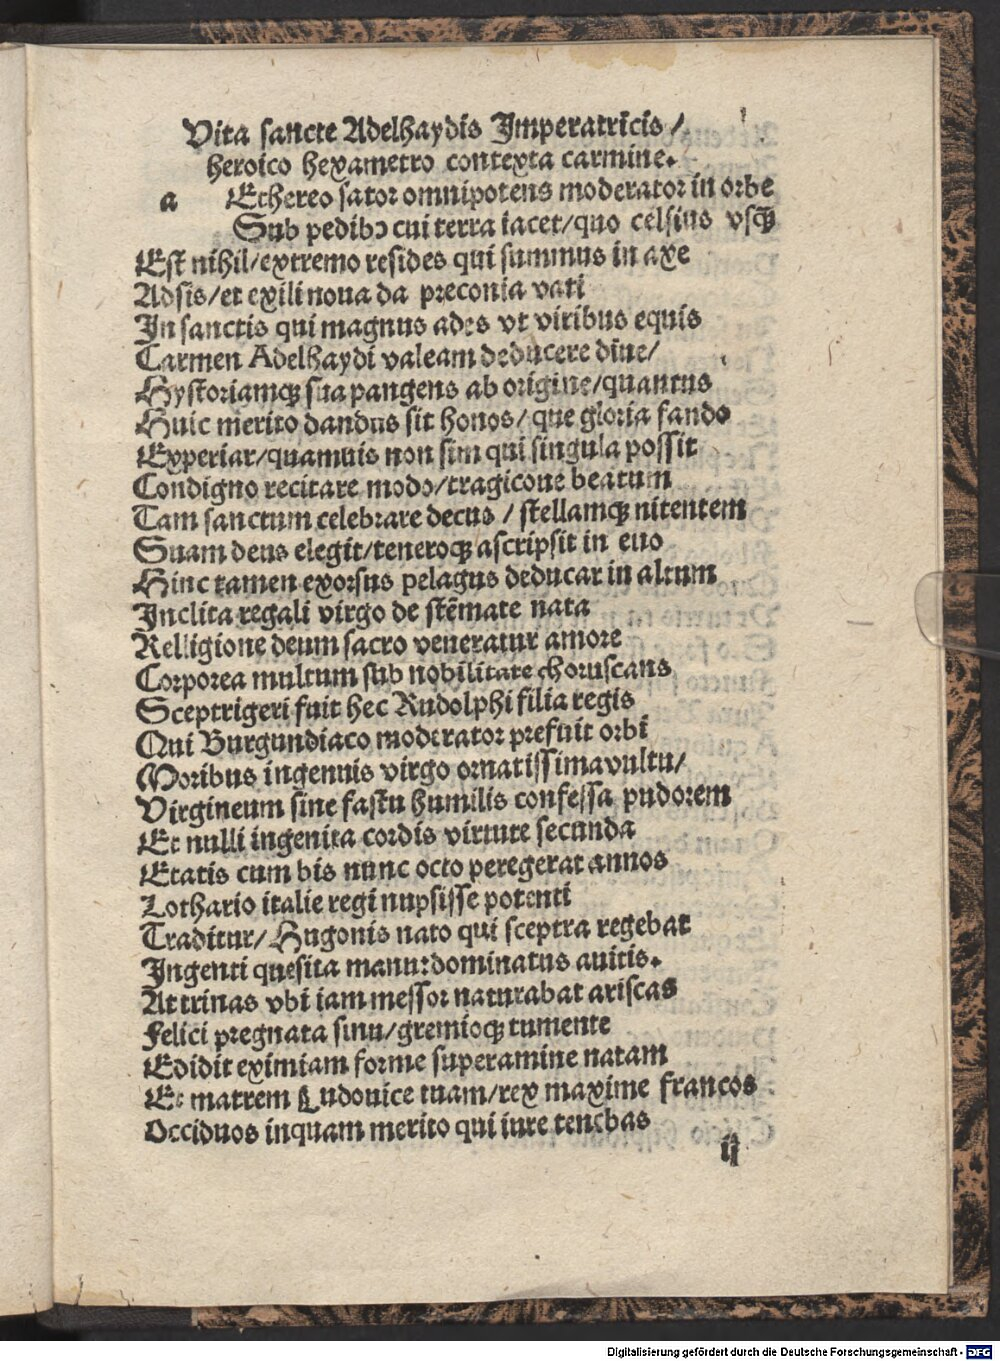 Vita sancte Adelhaydis Imperatricis /
heroico hexametro contexta carmine.
a Ethereo sator omnipotens moderator in orbe
Sub pedibꝰ cui terra iacet/quo celsius vsqꝫ
Est nihil/extremo resides qui summus in axe
Adsis/et exili noua da preconia vati
In sanctis qui magnus ades vt viribus equis
Carmen Adelhaydi valeam deducere diue/
Hystoriamqꝫ sua pangens ab origine/quantus
Huic merito dandus sit honos/que gloria fando
Experiar/quamuis non sim qui singula possit
Condigno recitare modo/tragicoue beatum
Tam sanctum celebrare decus / stellamqꝫ nitentem
Suam deus elegit/teneroqꝫ ascripsit in euo
Hinc tamen exorsus pelagus deducar in altum
Inclita regali virgo de stēmate nata
Relligione deum sacro veneratur amore
Corporea multum sub nobilitate choruscans
Sceptrigeri fuit hec Rudolphi filia regis
Qui Burgundiaco moderator prefuit orbi
Moribus ingenuis virgo ornatissima vultu/
Virgineum sine fastu humilis confessa pudorem
Et nulli ingenita cordis virtute secunda
Etatis cum bis nunc octo peregerat annos
Lothario italie regi nupsisse potenti
Traditur/Hugonis nato qui sceptra regebat
Ingenti quesita manu:dominatus auitis.
At trinas vbi iam messor naturabat ariscas
Felici pregnata sinu/gremioqꝫ tumente
Edidit eximiam forme superamine natam
Et matrem Ludouice tuam/rex maxime francos
Occiduos inquam merito qui iure tenebas
ij
Digitalisierung gefördert durch die Deutsche Forschungsgemeinschaft - DFG